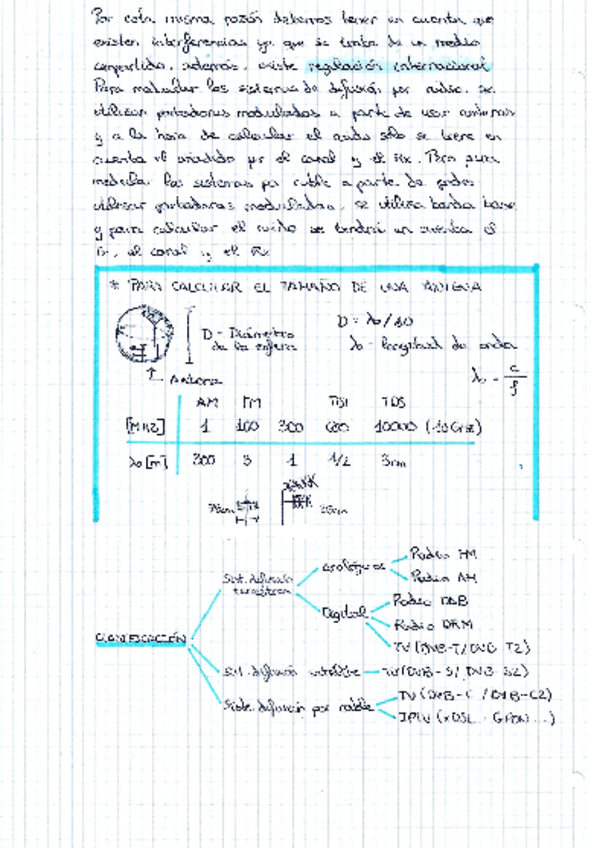 Por esta misma razón debemos tener en cuenta que
existen interferencias ya que se trata de un medio
compartido, además, existe regulación internacional
Para los sistemas de difusión por radio, se
utilizan portadoras moduladas a parte de usar antenas
y a la hora de calcular el ruido sólo se tiene en
cuenta el añadido por el canal y el Rx. Pero para
los sistemas por cable a parte de poder
utilizar portadoras moduladas, se utiliza banda base
y para calcular el ruido se tendrá en cuenta el
Tx, el canal y el Rx
* PARA CALCULAR EL TAMAÑO DE UNA ANTENA
D - Diámetro de la esfera
D = λo/10
λo - longitud de onda
λo = c/f
Antena
AM FM TDT TDS
[MHz] 1 100 300 600 10000 (10GHz)
λo [m] 300 3 1 1/2 3cm
CLASIFICACIÓN
Sist. difusión terrestres
analógicos
Radio FM
Radio AM
Digital
Radio DAB
Radio DRM
TV (DVB-T/DVB-T2)
Sist. difusión satélite - TV (DVB-S/DVB-S2)
Sist. difusión por cable
TV (DVB-C/DVB-C2)
IPTV (xDSL, GPON...)